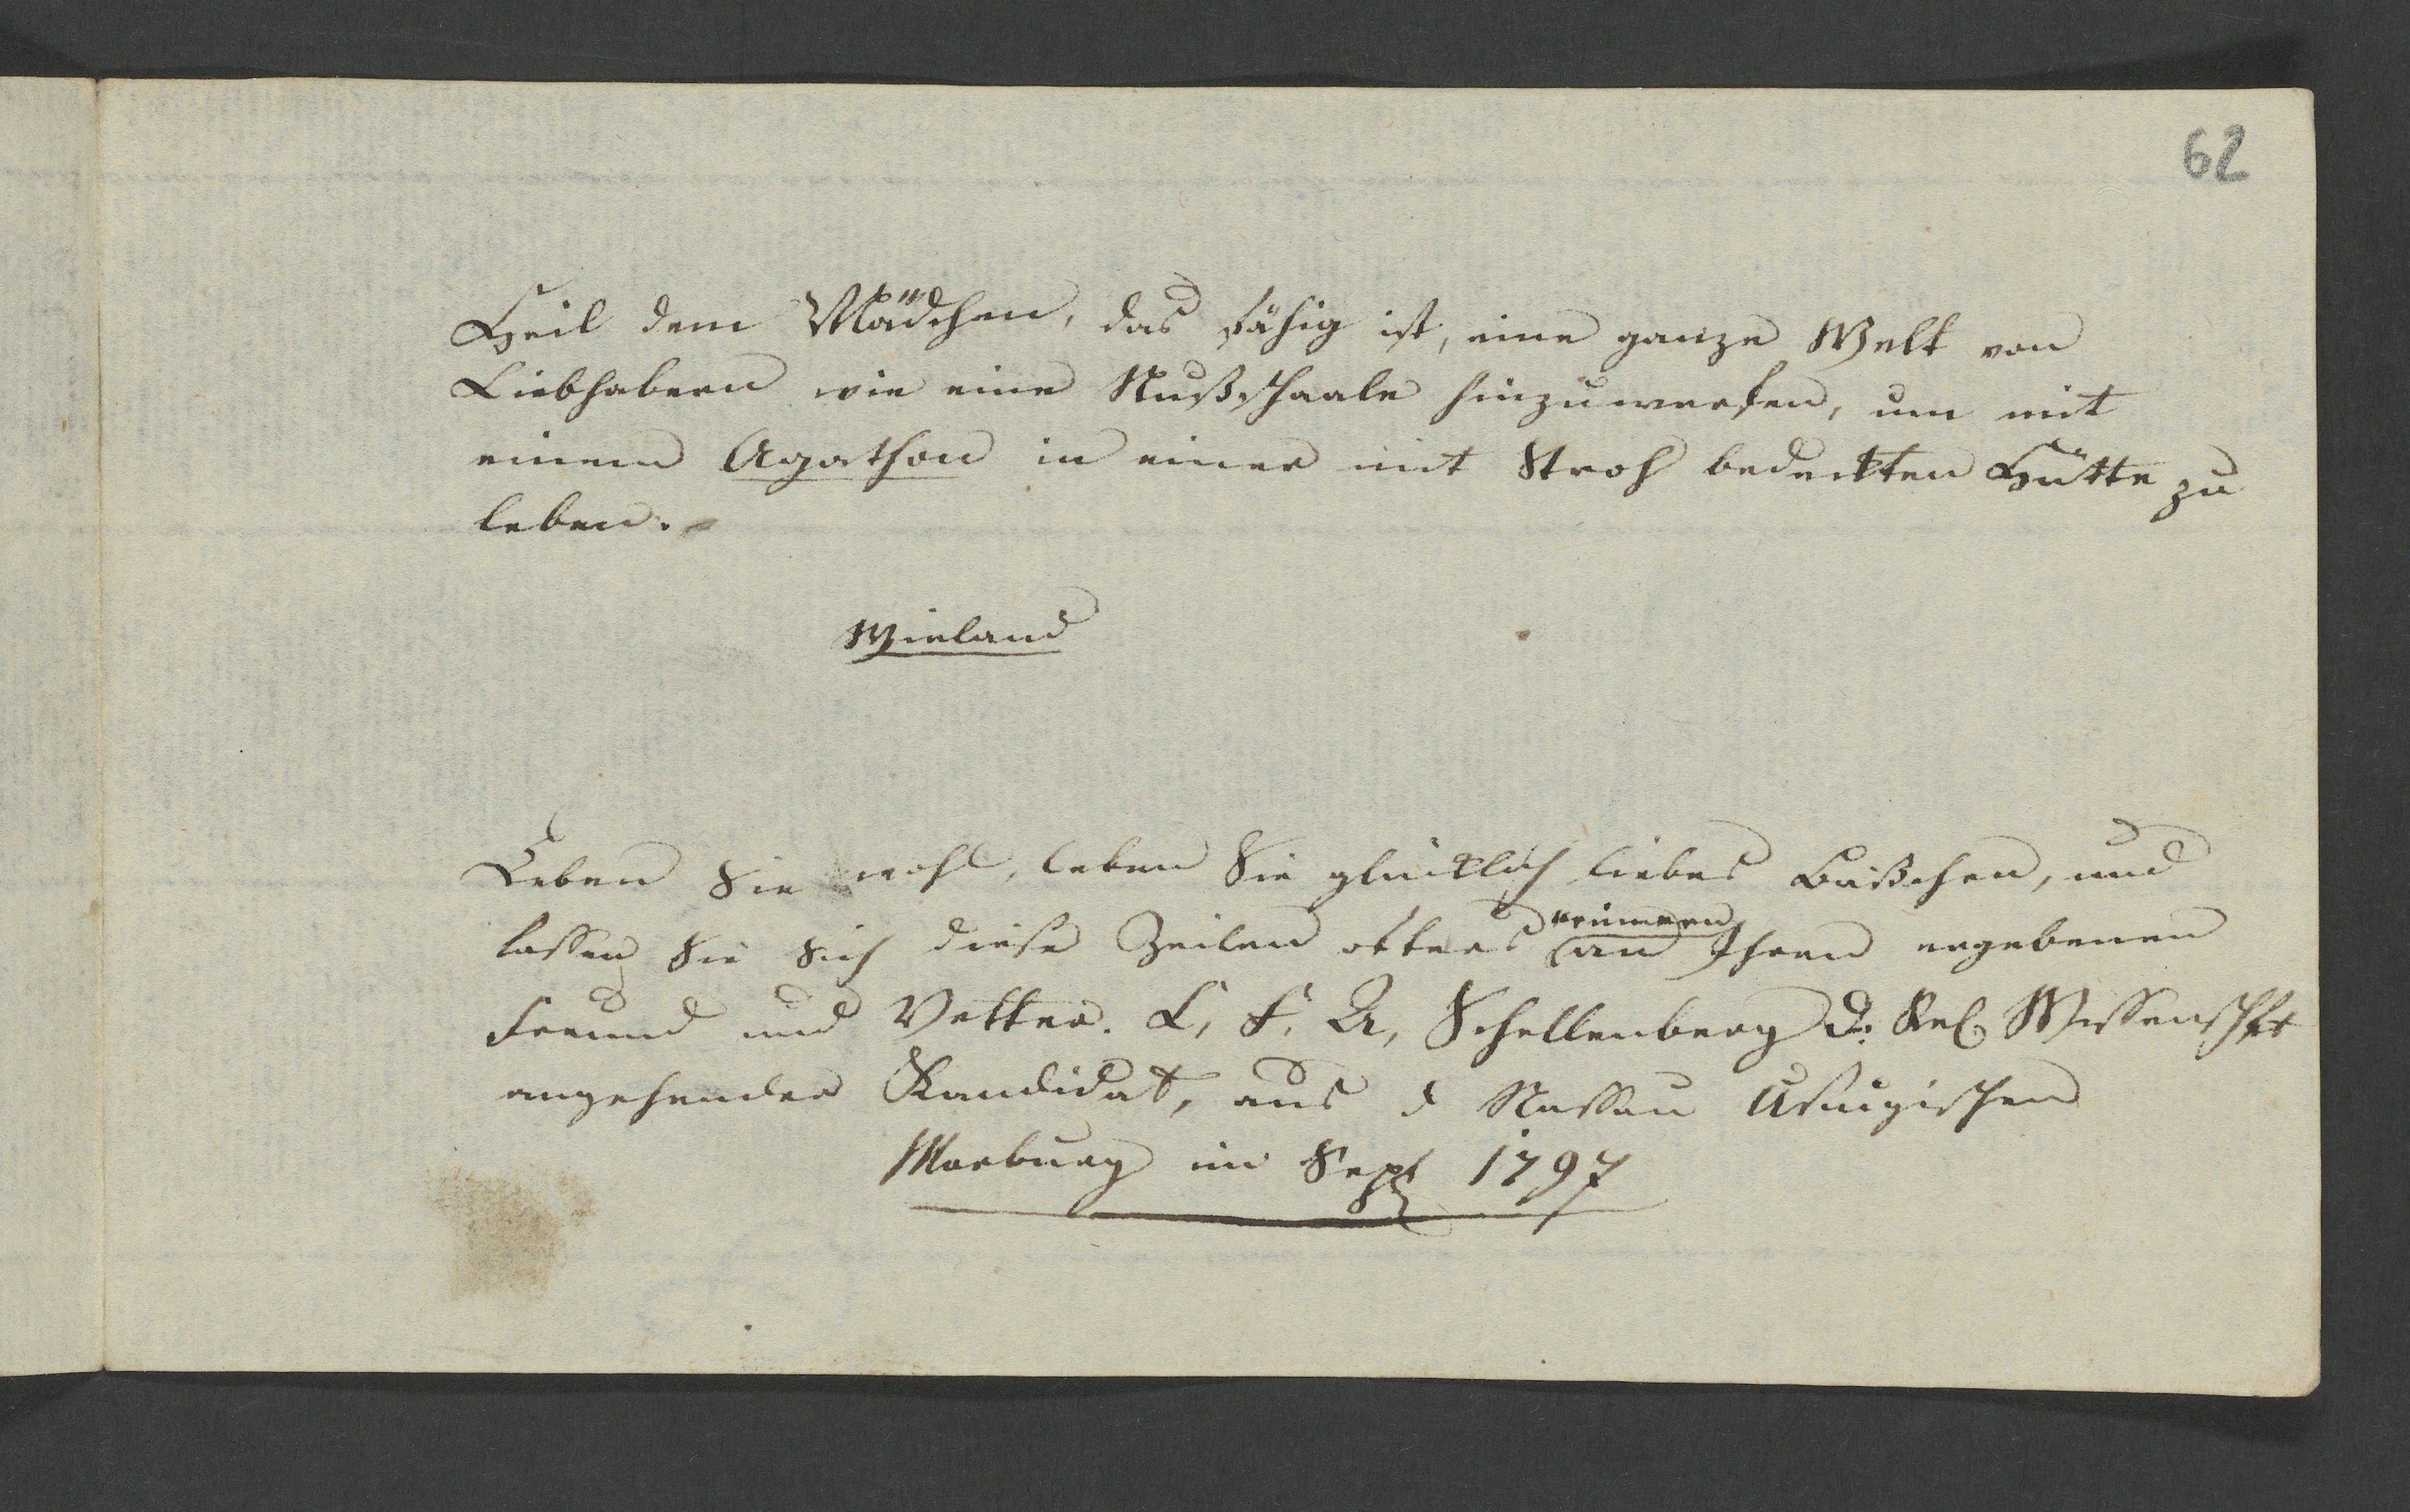 62
Heil dem Mädchen, das fähig ist, eine ganze Welt von
Liebhabern wie eine Nußschaale hinzuwerfen, um mit
einem Agathon in einer mit Stroh bedeckten Hütte zu
leben.
Wieland
Leben Sie wohl, leben Sie glücklich liebes Bäßchen, und
erinnern
lassen Sie Sich diese Zeilen öfters an Ihren ergebenen
Freund und Vetter. C. F. A. Schellenberg d. Rel. Wissenschft
angehender Kandidat, aus d Nassau Usingischen
Marburg im Sept 1797